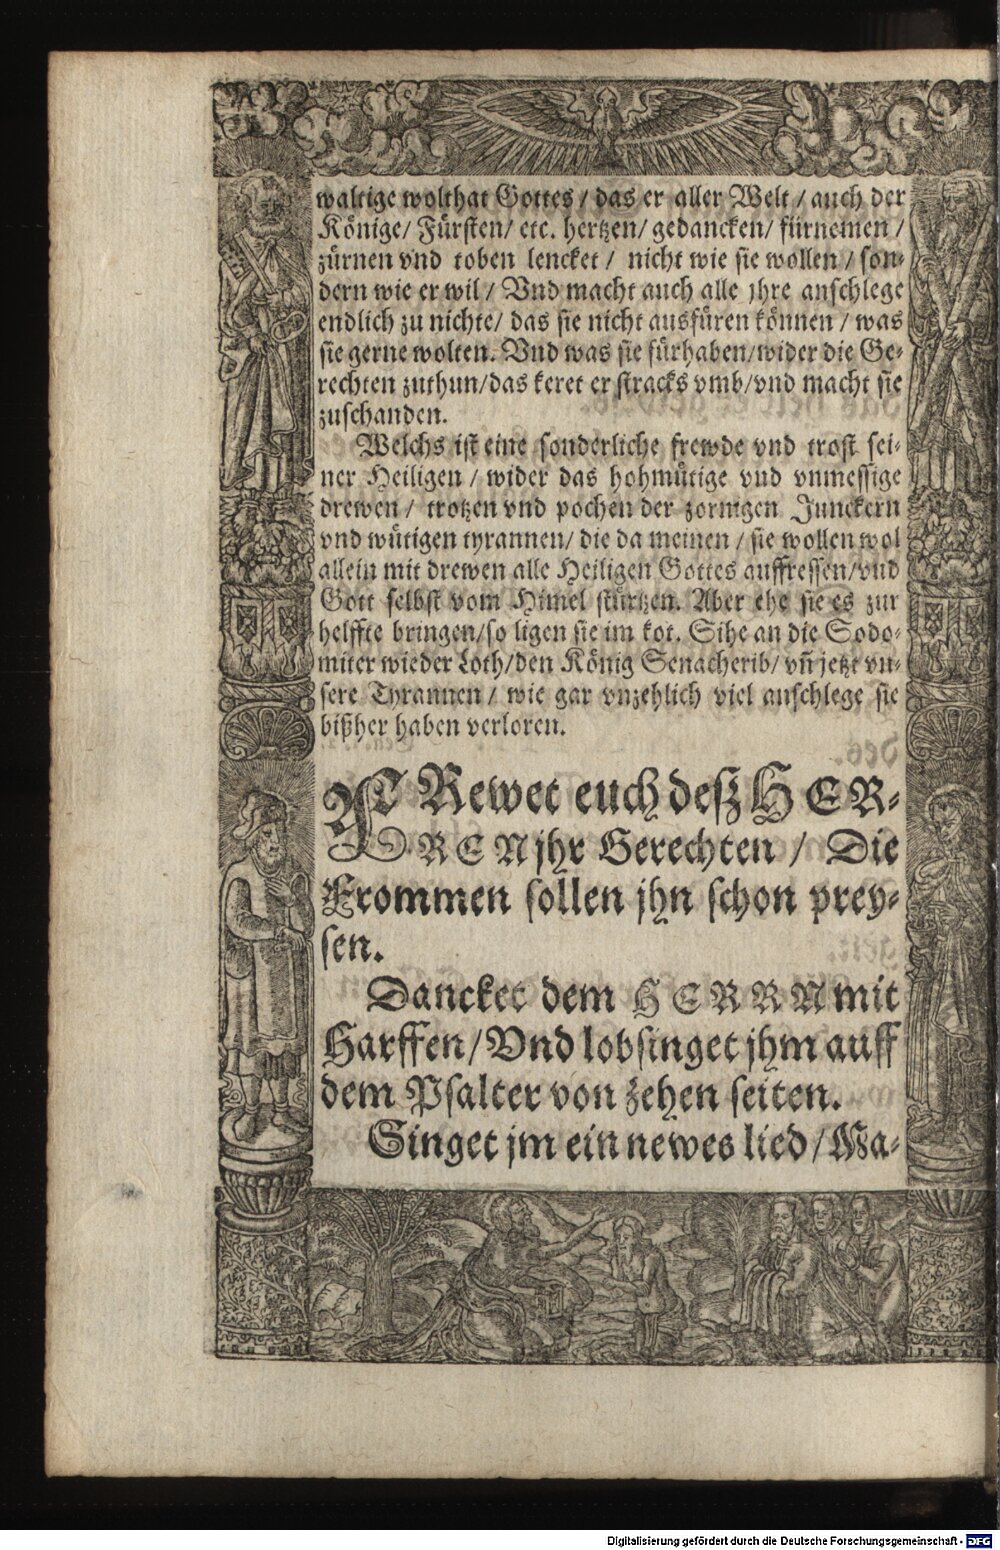 waltige wolthat Gottes / das er aller Welt / auch der
Könige/ Fürsten/ etc. hertzen/ gedancken/ fürnemen /
zürnen vnd toben lencket / nicht wie sie wollen / son-
dern wie er wil / Vnd macht auch alle jhre anschlege
endlich zu nichte/ das sie nicht ausfüren können / was
sie gerne wolten. Vnd was sie fürhaben/wider die Ge-
rechten zuthun/das keret er stracks vmb/vnd macht sie
zuschanden.
Welchs ist eine sonderliche frewde vnd trost sei-
ner Heiligen / wider das hohmütige vnd vnmessige
drewen / trotzen vnd pochen der zornigen Junckern
vnd wütigen tyrannen/ die da meinen / sie wollen wol
allein mit drewen alle Heiligen Gottes auffressen/vnd
Gott selbst vom Himel stürtzen. Aber ehe sie es zur
helffte bringen/so ligen sie im kot. Sihe an die Sodo-
miter wieder Loth/den König Senacherib/ vñ jetzt vn-
sere Tyrannen / wie gar vnzehlich viel anschlege sie
bißher haben verloren.
FRewet euch deß HER-
REN jhr Gerechten / Die
Frommen sollen jhn schon prey-
sen.
Dancket dem HERRN mit
Harffen/Vnd lobsinget jhm auff
dem Psalter von zehen seiten.
Singet jm ein newes lied / Ma-
Digitalisierung gefördert durch die Deutsche Forschungsgemeinschaft - DFG